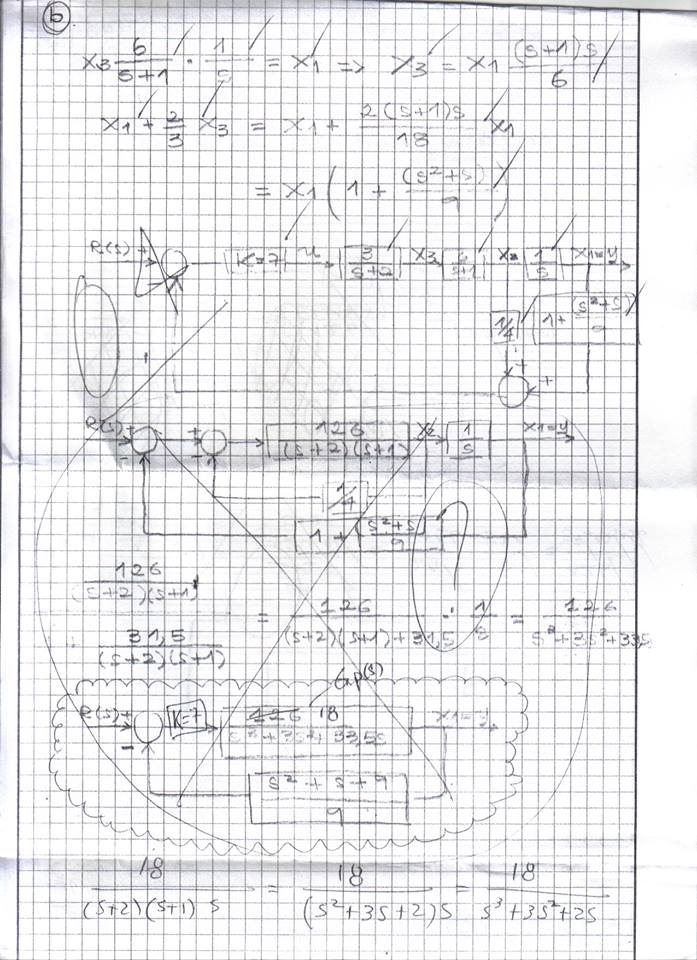 b
x3 6/(s+1) · 1/s = x1 => x3 = x1 (s+1)s/6
x1 + 2/3 x3 = x1 + 2(s+1)s/18 x1
= x1 (1 + (s²+s)/9)
R(s) + K=7 u 3/(s+2) x3 /(s+1) 1/s x1=y
1/4 1 + (s²+s)/9
+ +
R(s) + + 126/((s+2)(s+1)) x2 1/s x1=y
- -
1/4
1 + (s²+s)/9 ?
126/((s+2)(s+1)) = 126/((s+2)(s+1)+31,5) · 1/s = 126/(s³+3s²+33,5s
31,5/((s+2)(s+1))
Gp(s)
R(s) + K=7 126 18/(s³+3s²+33,5s) x1=y
-
(s²+s+9)/9
18/((s+2)(s+1) s) = 18/((s²+3s+2)s) = 18/(s³+3s²+2s)